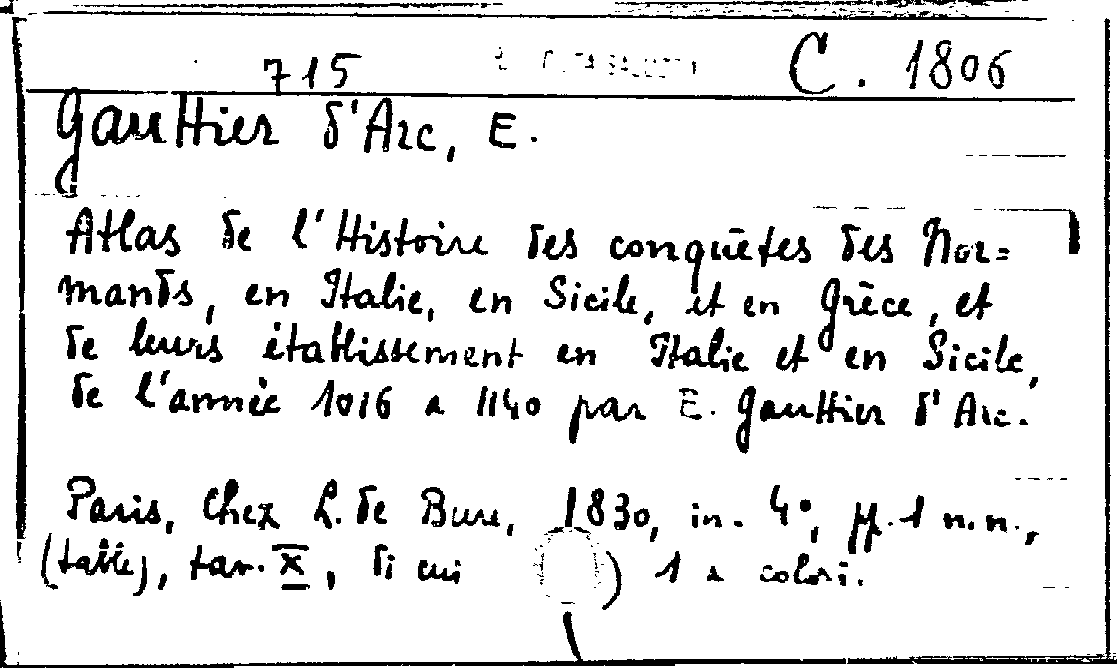 715 C. 1806
Gautthier d'Arc, E.
Atlas de l'Histoire des conquêtes des Nor=
mands, en Italie, en Sicile, et en Grèce, et
de leurs établissement en Italie et en Sicile,
de l'année 1016 a 1140 par E. Gautthier d'Arc.
Paris, Chez L. de Bure, 1830, in-4°, pp. 1 n.n.,
(table), tav. X, di cui ) 1 a colori.